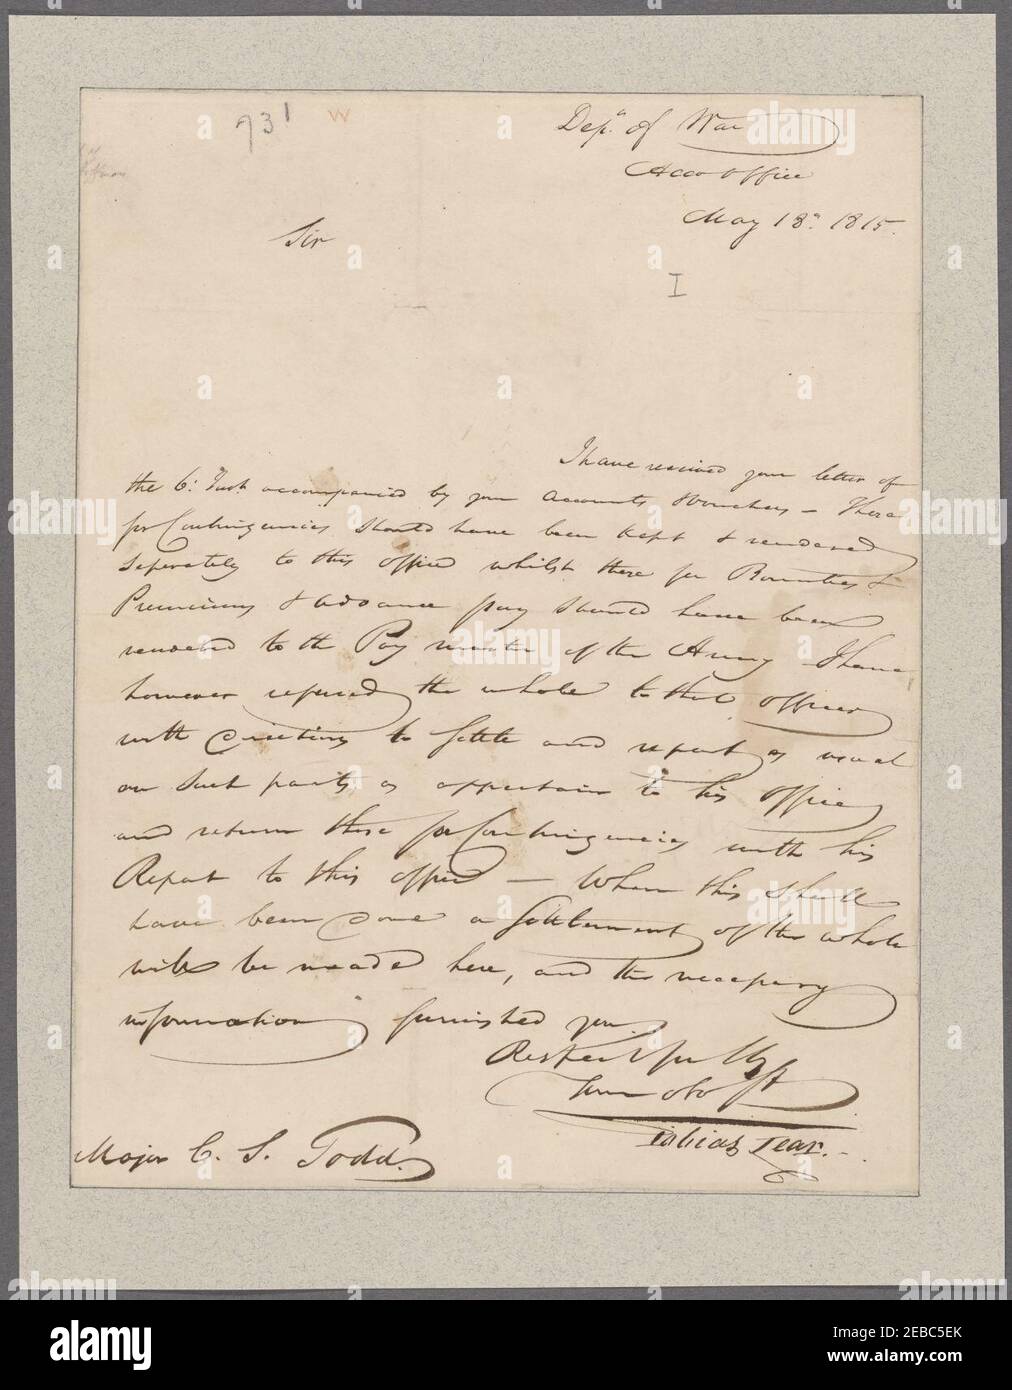 931 W
Dep.t of War
Acco Office
May 18th 1815.
Sir
I
I have received your letter of
the 6. Inst. accompanied by your Accounts & Vouchers – These
for Contingencies should have been kept & rendered
seperately to this office whilst these for Bounties &
Premiums & advance pay should have been
rendered to the Pay master of the Army I have
however refered the whole to that officer
with directions to settle and report as usual
on such parts as appertain to his office
and return those for Contingencies with his
Report to this office – When this shall
have been done a settlement of the whole
will be made here, and the necessary
information furnished you.
Respectfully
Your obt St
Tobias Lear.
Major C. S. Todd.
alamy
Image ID: 2EBC5EK
www.alamy.com